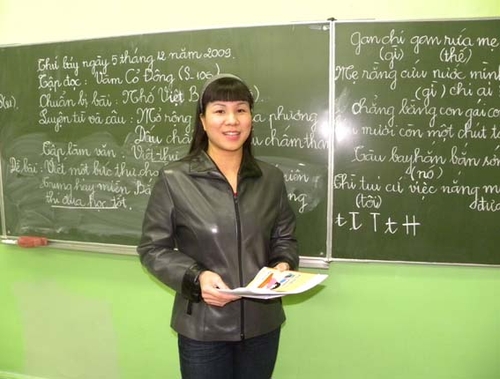 Thứ bảy ngày 5 tháng 12 năm 2009.
Tập đọc: Vàm Cỏ Đông (S-106)
Chuẩn bị bài: Nhớ Việt B
Luyện từ và câu: Mở rộng a phương
Dấu chấ u chấm than
Tập làm văn: Viết thư
Đề bài: Viết một bức thư cho iên
trung hay miền Bắ ng
thi đua học tốt
Gan chi gan rứa mẹ
(gì) (thế)
Mẹ rằng cứu nước mình
(gì) chỉ ai
chẳng bằng con gái con
u mười cũng một chút
Tàu bay hắn bắn sớm
(nó)
Thì tui cứ việc nắng m
(tôi) đưa
t I T t H